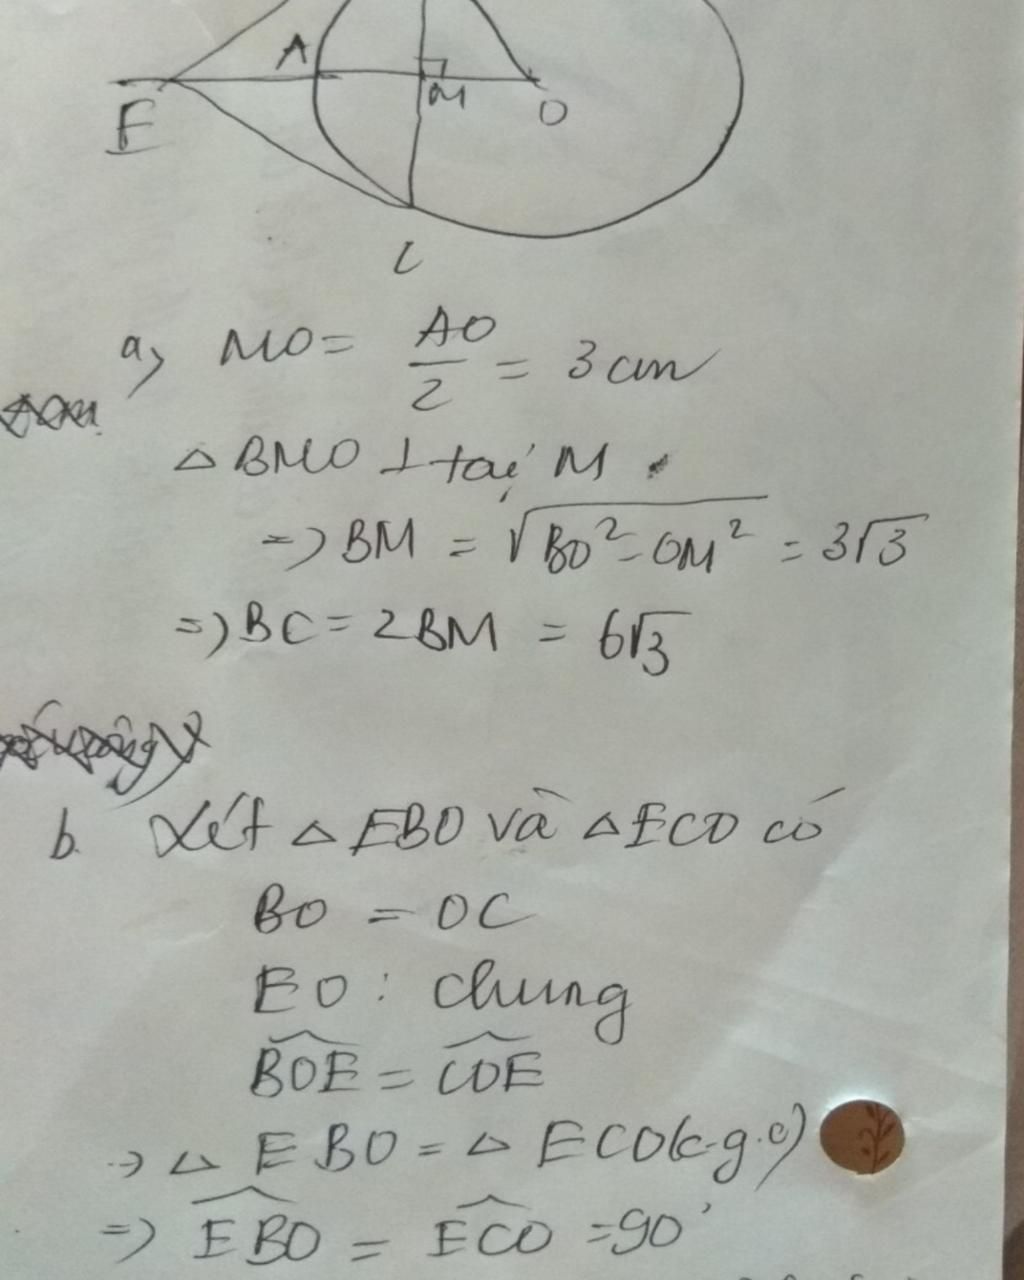 A
E
M
O
C
a) MO = AO/2 = 3 cm
△ BMO ⊥ tại M
=> BM = √(BO² - OM²) = 3√3
=> BC = 2BM = 6√3
b. Xét △ EBO và △ ECO có
BO = OC
EO : chung
BOE = COE
-> △ EBO = △ ECO (c.g.c)
=> EBO = ECO = 90°